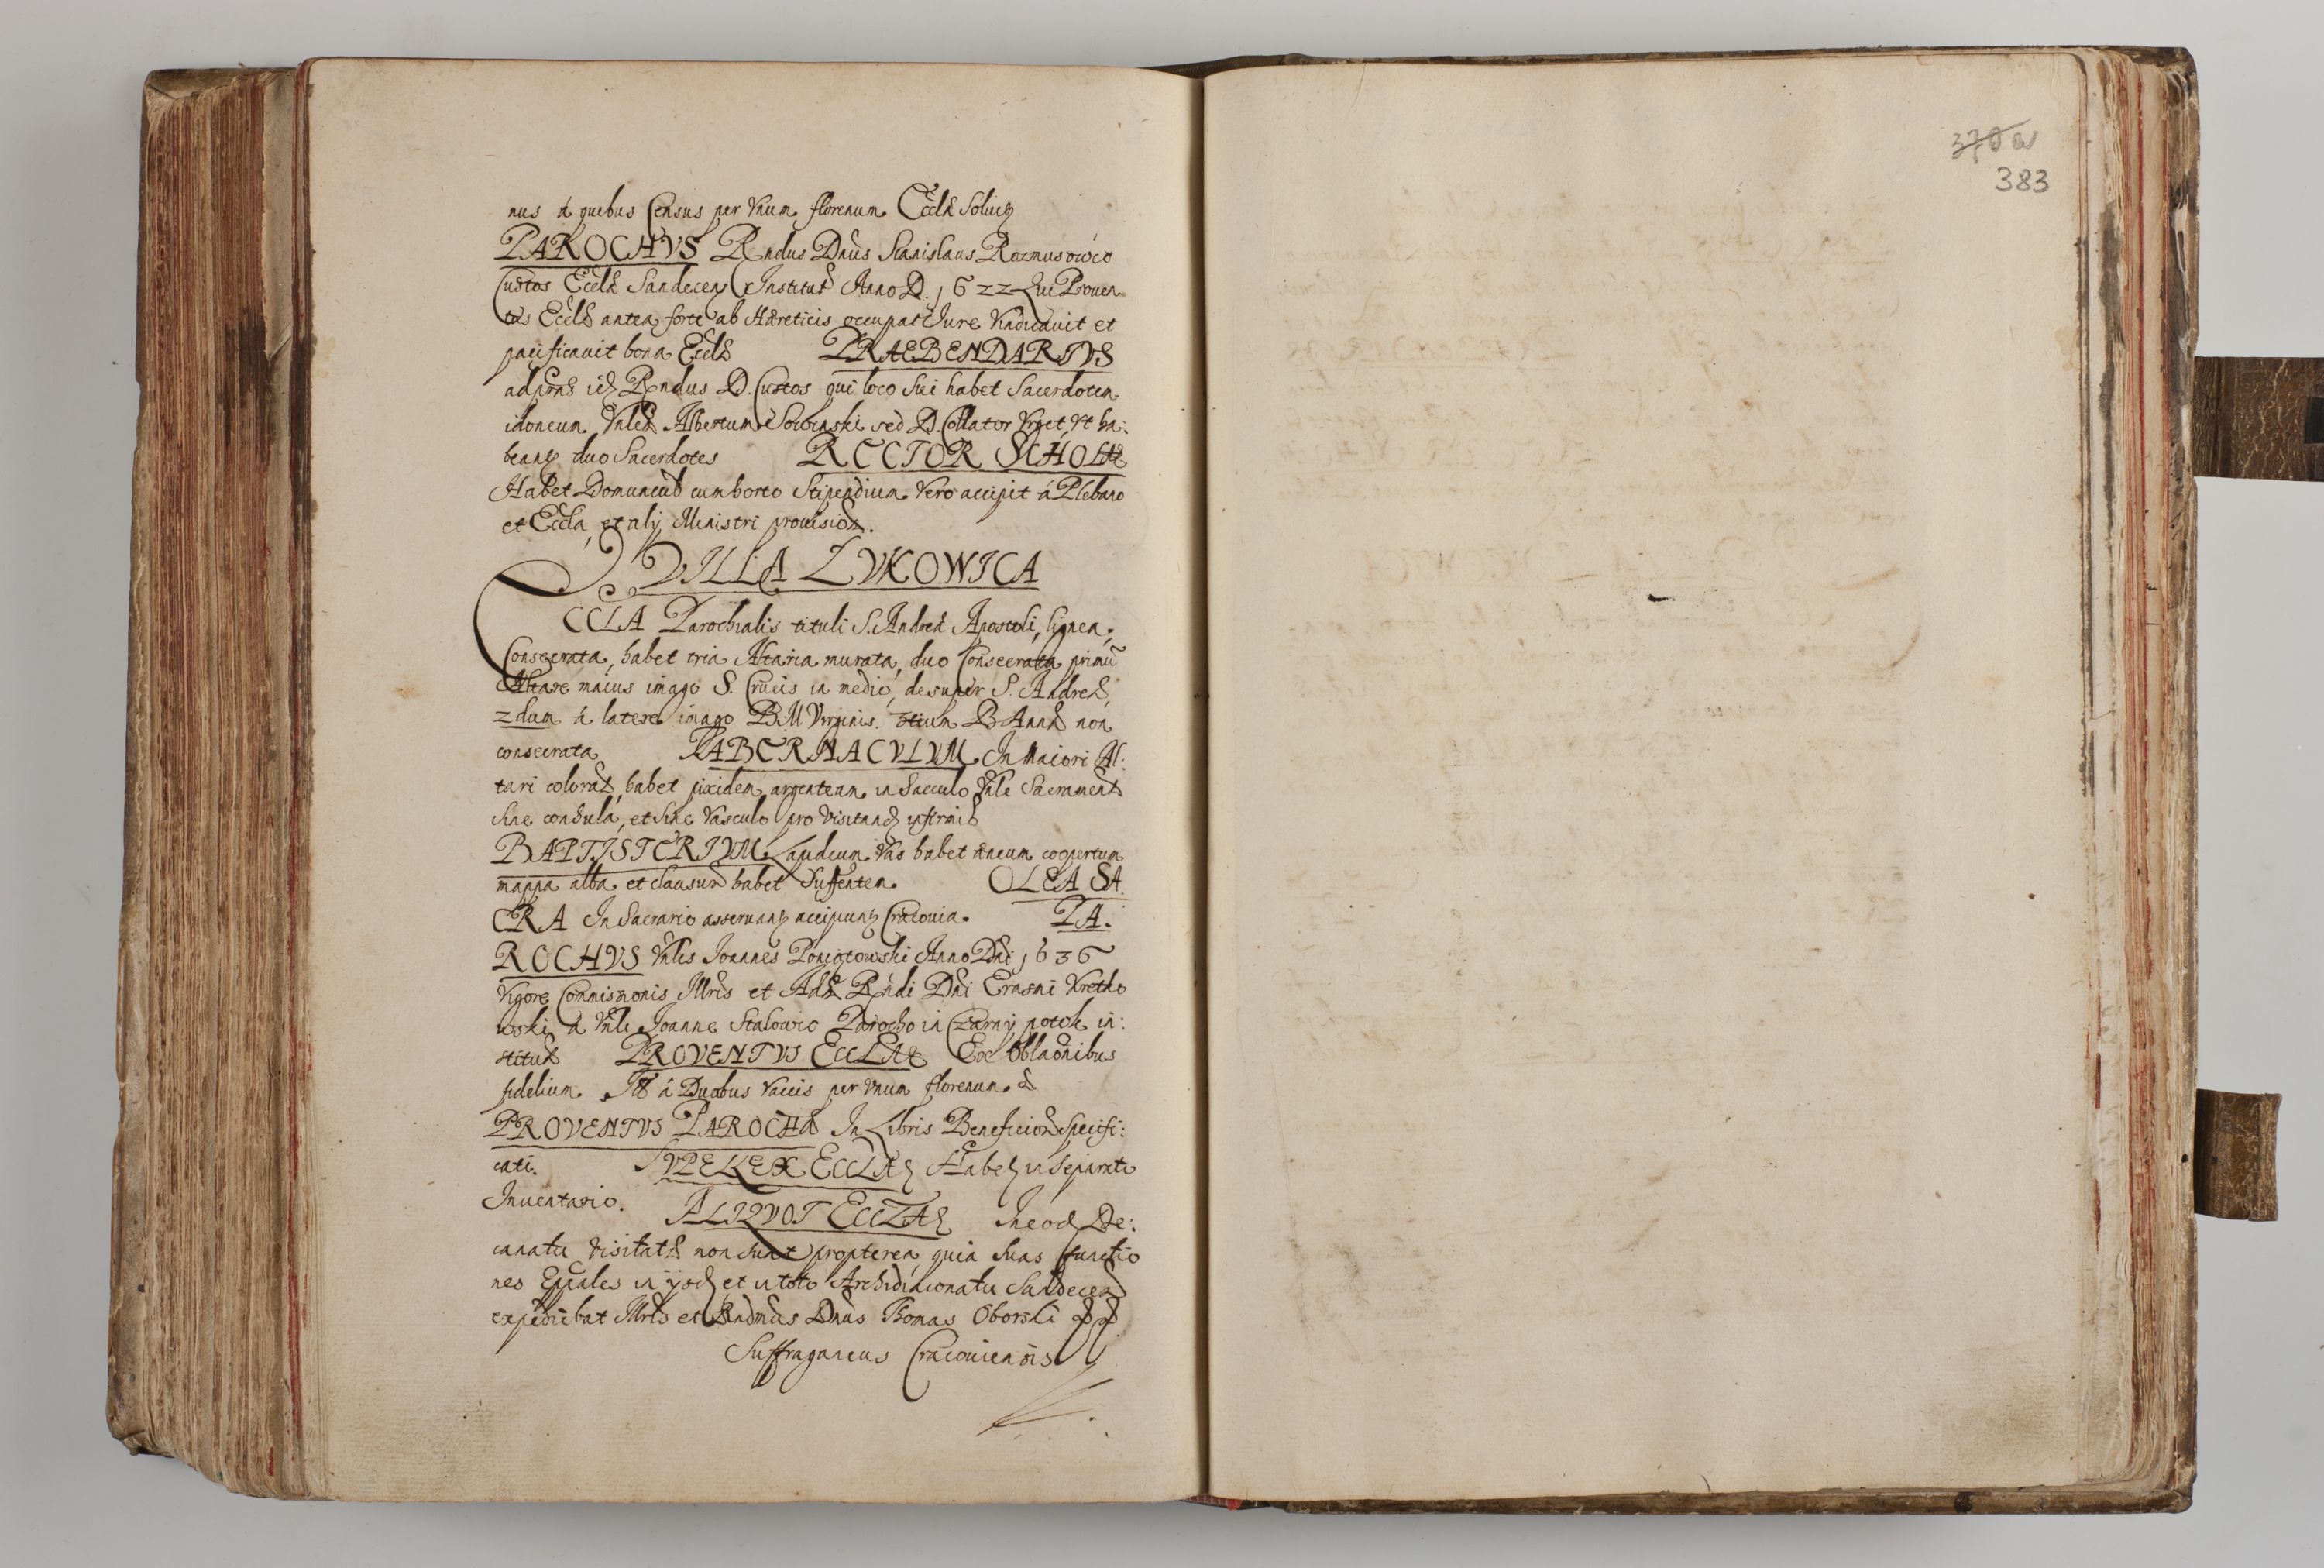 nus á quibus Census per Vnum florenum Eccłæ Soluitᵣ
PAROCHVS Rńdus Dńus Stanislaus Rozmusowic
Custos Eccłæ Sandecen Institut Anno D. 1622 Qui Proven
tus Eccłæ antea forte ab Hæreticis occupat Iure Vindicauit et
pacificauit bona Eccłæ PRAEBENDARIVS
ad præs id Rńdus D. Custos qui loco sui habet Sacerdotem
idoneum Vńlem Albertum sed D. Collator Vrget, Vt ha:
beant duo Sacerdotes RECTOR SCHOLÆ
Habet Domuncul cum horto Stipendium Vero accipit á Plebano
et Eccła, et alij Ministri prouision.
VILLA ŁVKOWICA
ECCLA Parochialis tituli S. Andreæ Apostoli, lignea,
Consecrata, habet tria Altaria murata, duo Consecrata primū
Altare maius imago S. Crucis in medio, desuper S. Andreæ,
2dum á latere imago B.M Virginis. 3tium B Annæ non
consecrata TABERNACVLVM. In Maiori Al:
tari colorat, habet pixidem argenteam in Sacculo Vńle Sacrament
sine conchula, et sine Vasculo pro Visitand infirmis
BAPTISTERIVM Lapideum Vas habet æneum coopertum
mappa alba et clausur habet Sufficiten. OLEA SA
CRA In Sacrario asseruant accipiunt Cracouia. PA:
ROCHVS Vńlis Joannes Poniotowski Anno Dńi 1636
Vigore Commissionis Illris et Adm Rńdi Dńi Erasmi Kretko
wski á Vńli Joanne Stalowic Parocho in Czarny potok in:
stitut PROVENTVS ECCLÆ Ex Oblaõnibus
fidelium. It á Duobus Vaccis per Vnum florenum.
PROVENTVS PAROCHI In Libris Beneficior Specifi:
cati. SVPELLEX ECCLÆ Habet in Separato
Inuentario. ALIQVOT ECCLÆ In eod De:
canatu Visitatæ non sunt propterea quia suas functio
nes Eppales in ijsd et in toto Archidiaconatu Sandecen
expediebat Illris et Rndmus Dńus Thomas Oborski
Suffraganeus Cracouiensis
370a
383